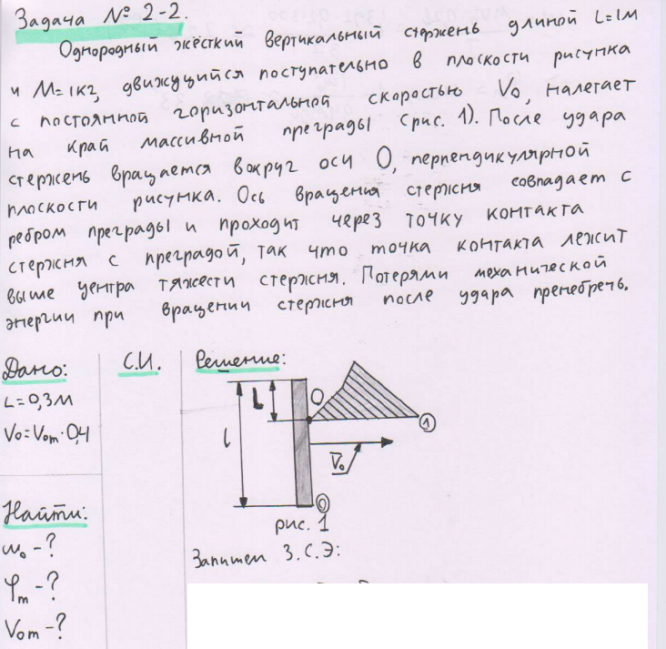 Задача № 2-2.
Однородный жёсткий вертикальный стержень длиной L=1м
и M=1кг, движущийся поступательно в плоскости рисунка
с постоянной горизонтальной скоростью V₀, налегает
на край массивной преграды (рис. 1). После удара
стержень вращается вокруг оси O, перпендикулярной
плоскости рисунка. Ось вращения стержня совпадает с
ребром преграды и проходит через точку контакта
стержня с преградой, так что точка контакта лежит
выше центра тяжести стержня. Потерями механической
энергии при вращении стержня после удара пренебречь.
Дано:
L=0,3м
V₀=V₀m·0,4
Найти:
ω₀-?
φm-?
V₀m-?
С.И.
Решение:
L
O
1
l
V̅₀
0
рис. 1
Запишем З.С.Э: